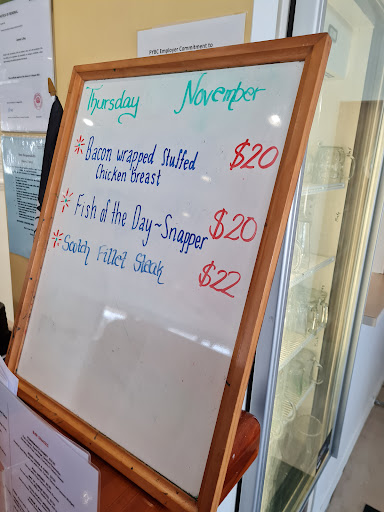 FYBC Employer Commitment to
Thursday November
Bacon wrapped Stuffed
Chicken breast $20
Fish of the Day ~ Snapper $20
Scotch Fillet Steak $22